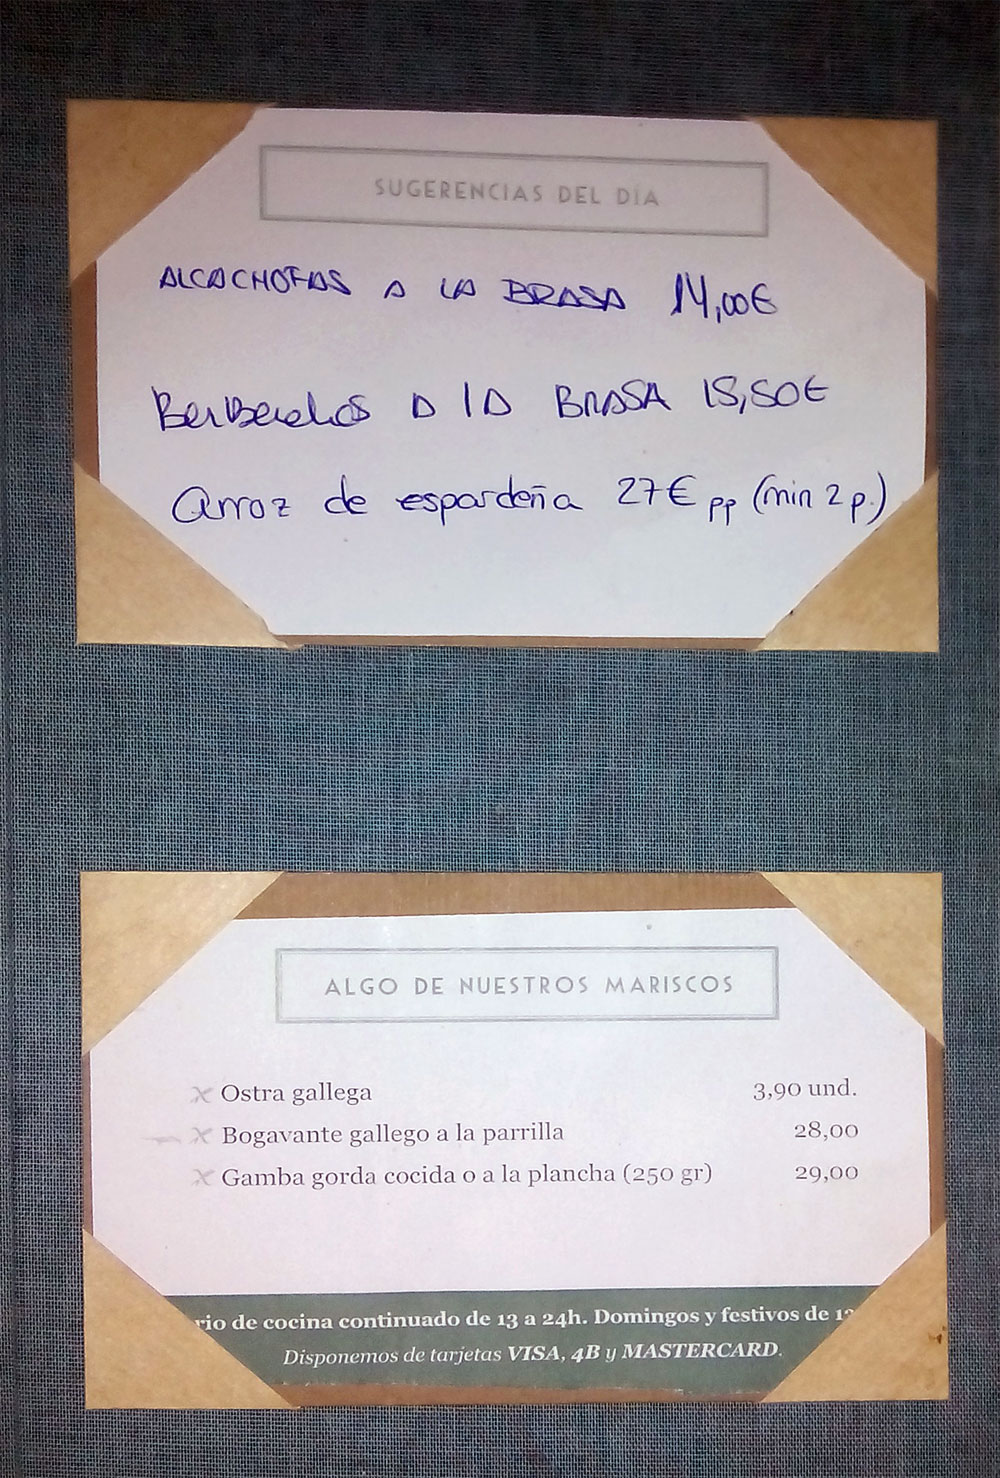 SUGERENCIAS DEL DÍA
ALCACHOFAS A LA BRASA 14,00€
Berberechos A LA BRASA 15,50€
Arroz de espardeña 27€ pp (min 2 p.)
ALGO DE NUESTROS MARISCOS
Ostra gallega 3,90 und.
Bogavante gallego a la parrilla 28,00
Gamba gorda cocida o a la plancha (250 gr) 29,00
rio de cocina continuado de 13 a 24h. Domingos y festivos de
Disponemos de tarjetas VISA, 4B y MASTERCARD.